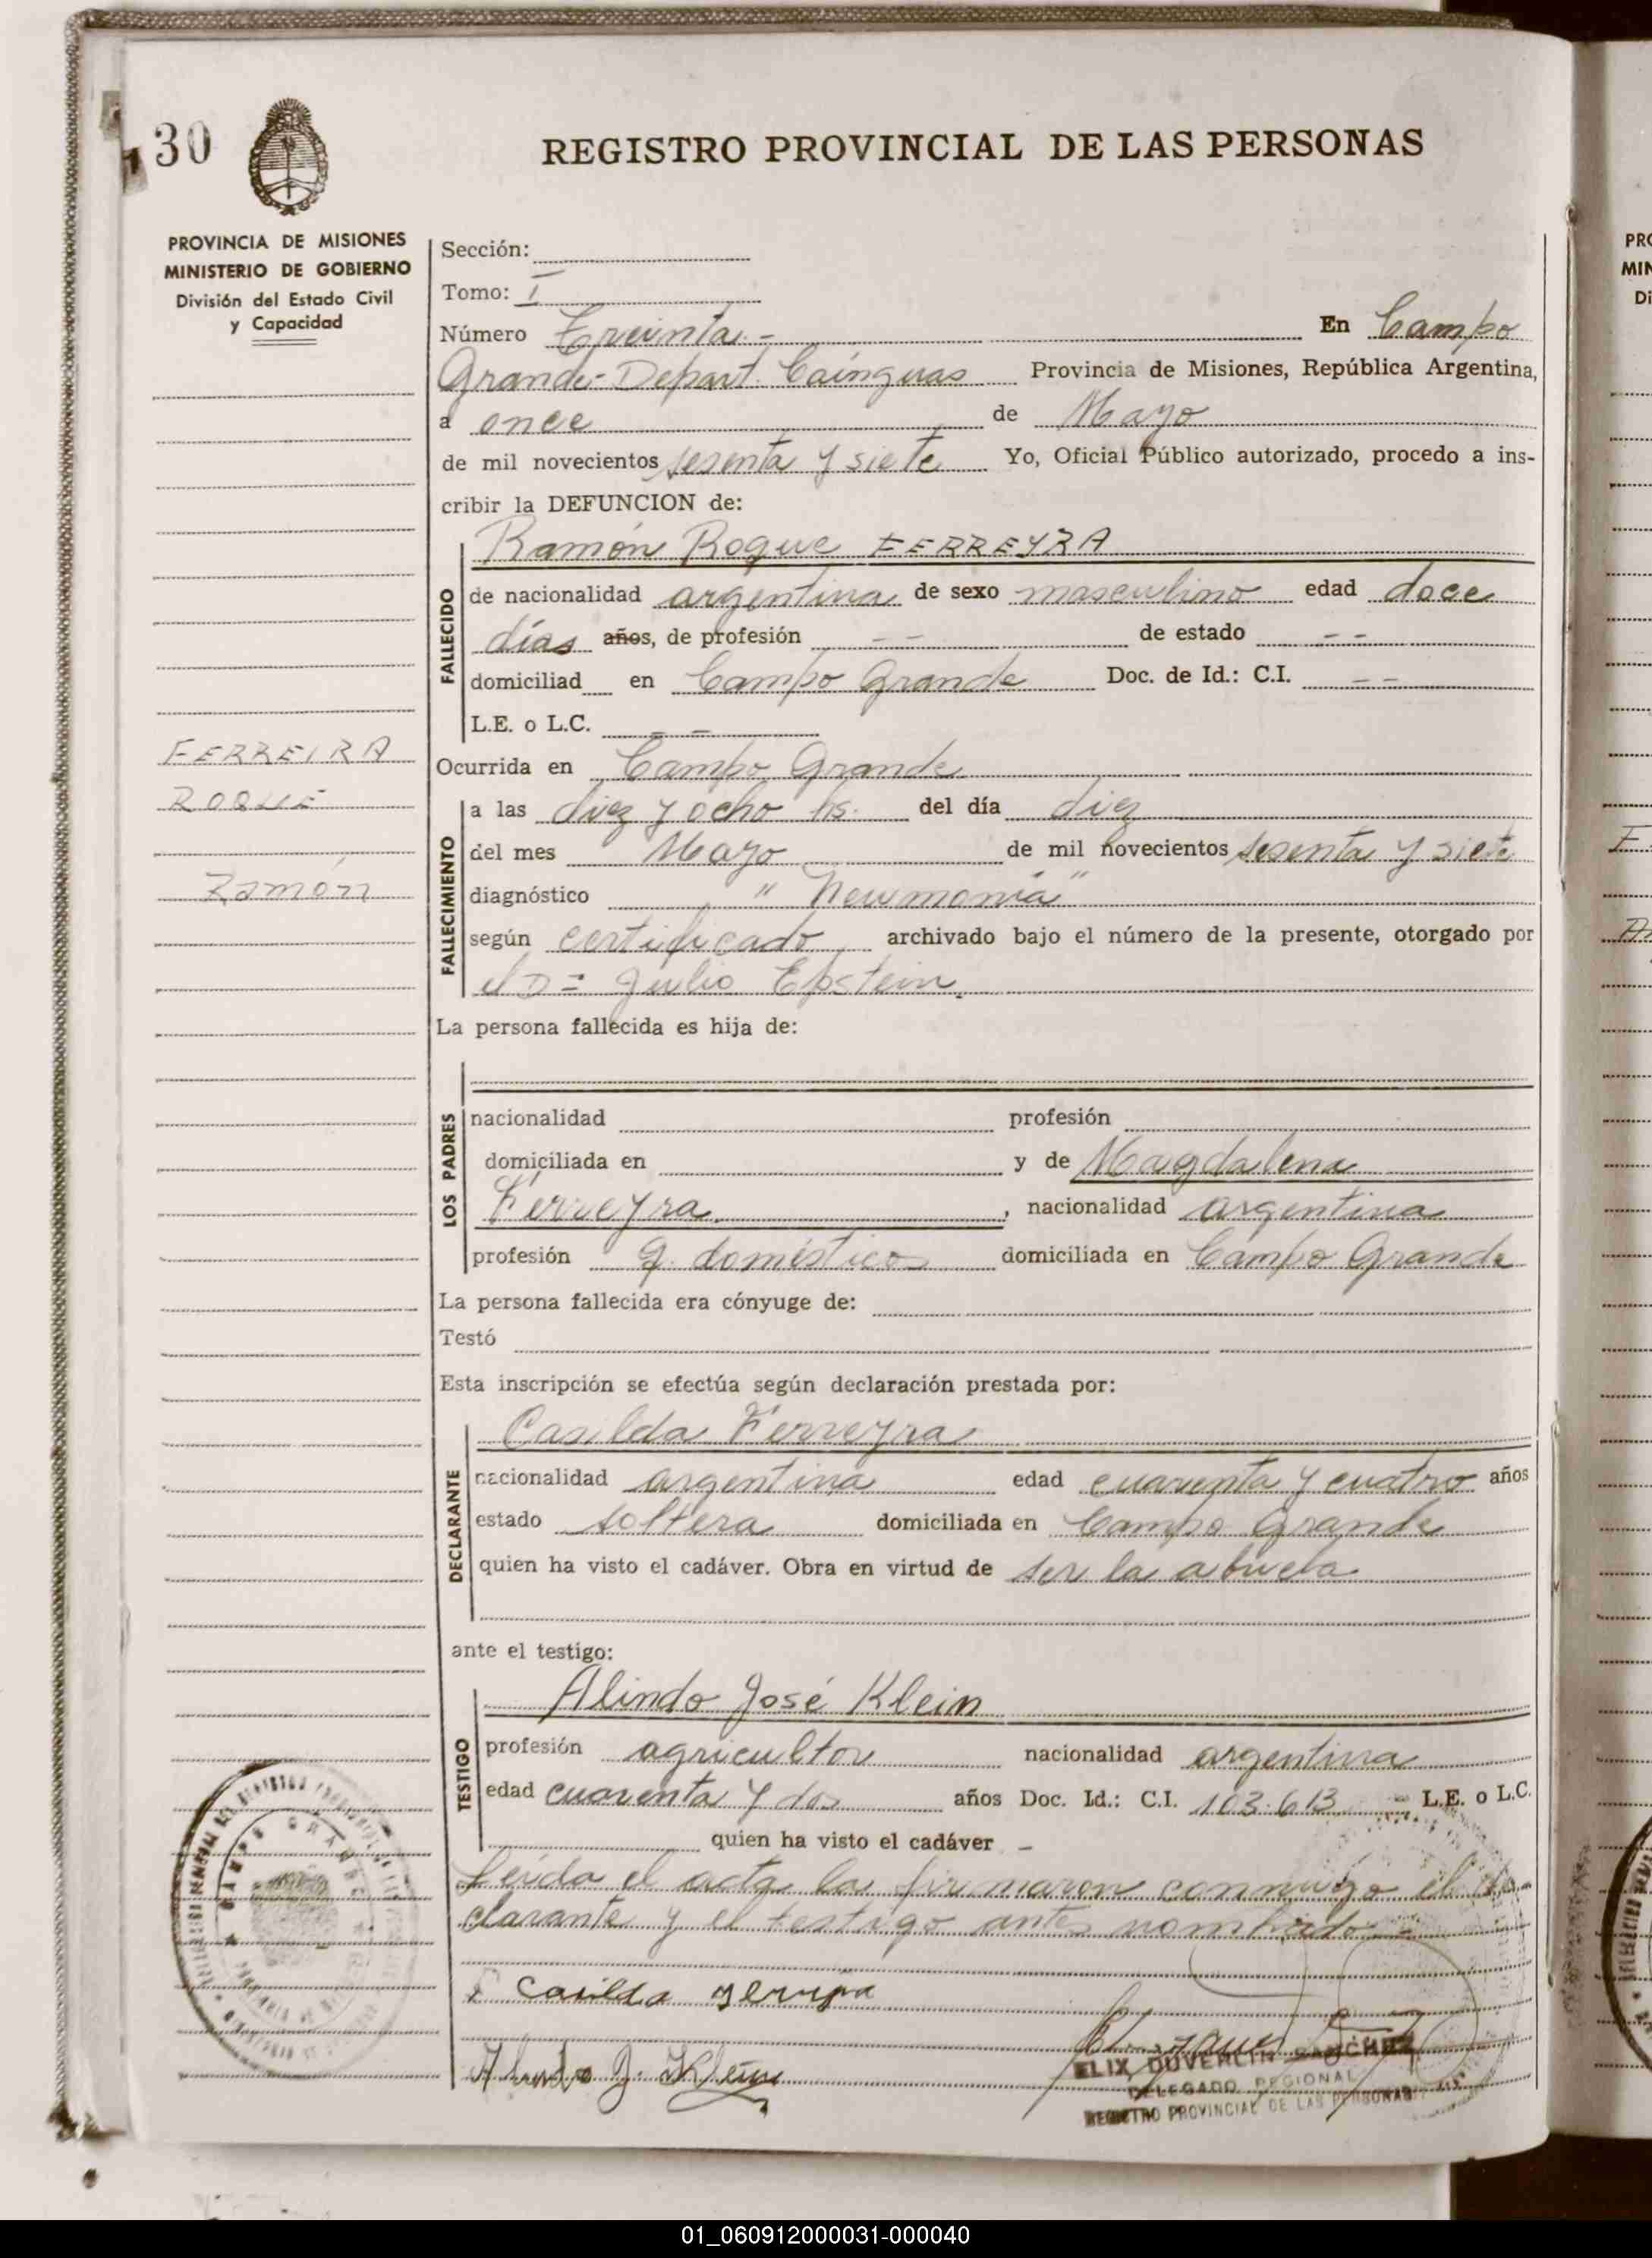 30
REGISTRO PROVINCIAL DE LAS PERSONAS
PROVINCIA DE MISIONES
MINISTERIO DE GOBIERNO
División del Estado Civil
y Capacidad
Sección:
Tomo: I
Número Treinta.- En Campo
Grande-Depart. Cainguas Provincia de Misiones, República Argentina,
a once de Mayo
de mil novecientos sesenta y siete Yo, Oficial Público autorizado, procedo a ins-
cribir la DEFUNCION de:
Ramón Roque FERREYRA
FALLECIDO
de nacionalidad argentina de sexo masculino edad doce
días años, de profesión -- de estado --
domiciliad en Campo Grande Doc. de Id.: C.I. --
L.E. o L.C. --
FERREIRA
ROQUE
Ramón
Ocurrida en Campo Grande
FALLECIMIENTO
a las diez y ocho hs. del día diez
del mes Mayo de mil novecientos sesenta y siete
diagnóstico "Neumonia"
según certificado archivado bajo el número de la presente, otorgado por
el D= Julio Epstein.
La persona fallecida es hija de:
LOS PADRES
nacionalidad profesión
domiciliada en y de Magdalena
Ferreyra, nacionalidad argentina
profesión q. domésticos domiciliada en Campo Grande
La persona fallecida era cónyuge de:
Testó
Esta inscripción se efectúa según declaración prestada por:
DECLARANTE
Casilda Ferreyra
nacionalidad argentina edad cuarenta y cuatro años
estado soltera domiciliada en Campo Grande
quien ha visto el cadáver. Obra en virtud de ser la abuela
ante el testigo:
TESTIGO
Alindo José Klein
profesión agricultor nacionalidad argentina
edad cuarenta y dos años Doc. Id.: C.I. 103.613 - L.E. o L.C.
quien ha visto el cadáver -
Leída el acta la firmaron conmigo el de-
clarante y el testigo antes nombrado.-
Casilda
Alindo J. Klein
ELIX DUVERLIN SANCHEZ
DELEGADO REGIONAL
REGISTRO PROVINCIAL DE LAS PERSONAS
01_060912000031-000040